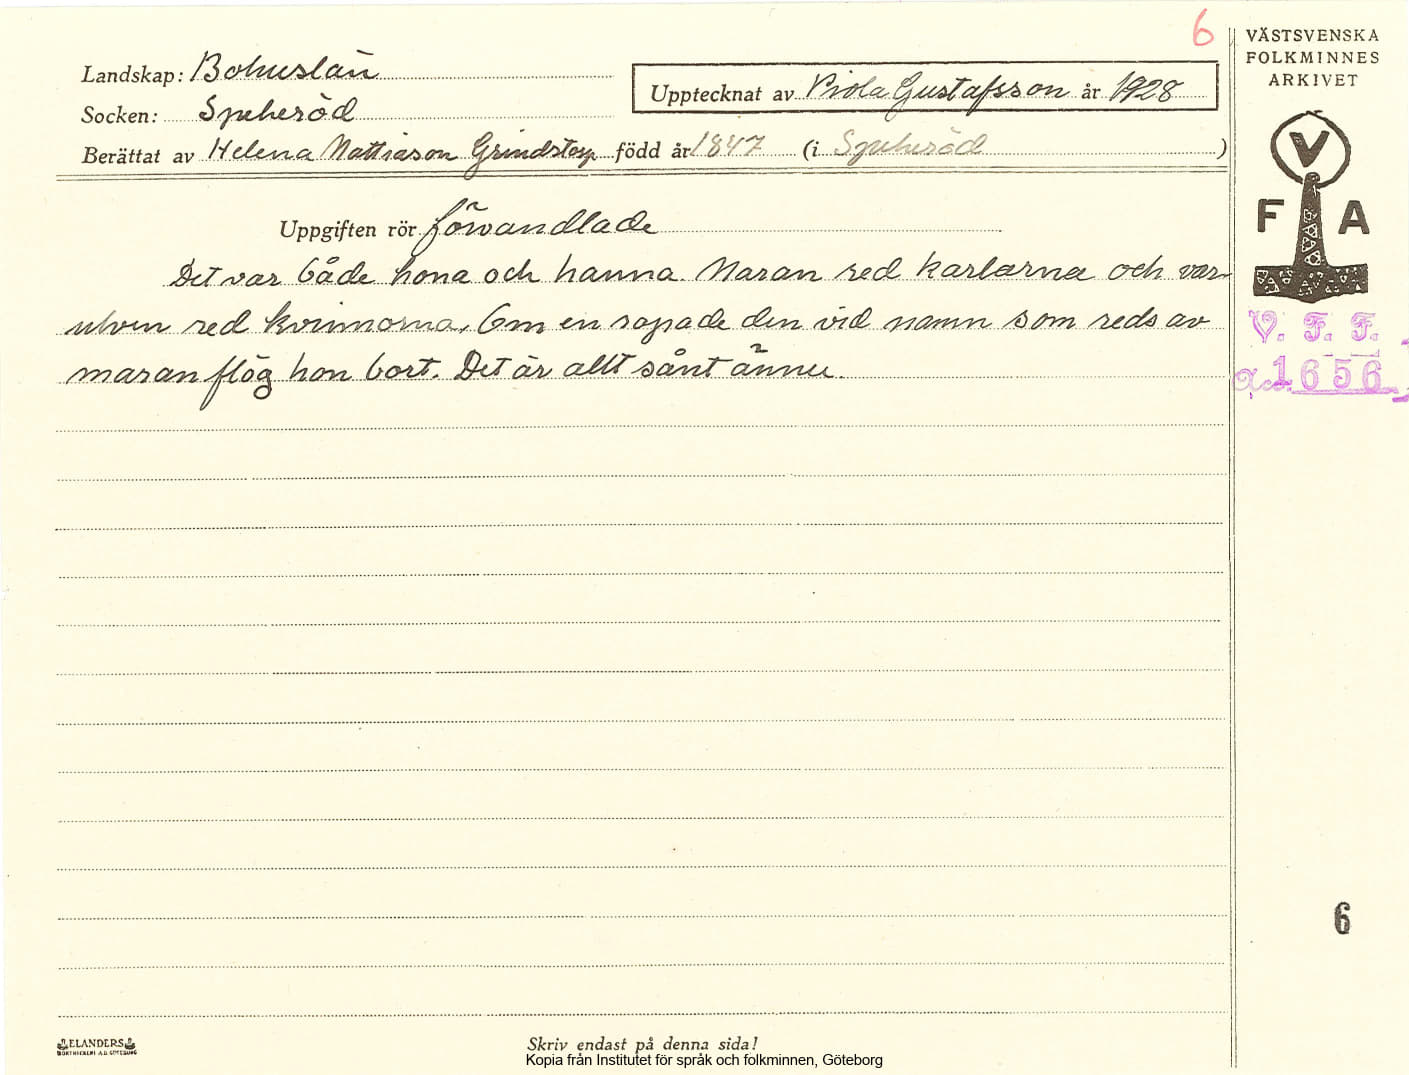 6
VÄSTSVENSKA
FOLKMINNES
ARKIVET
Landskap: Bohuslän
Upptecknat av Viola Gustafsson år 1928
Socken: Spekeröd
Berättat av Helena Mattiason Grindstorp född år 1847 (i Spekeröd)
V
F A
Uppgiften rör förvandlade
Det var både hona och hanna. Maran red karlarna och var-
ulven red kvinnorna. Om en ropade den vid namn som reds av
maran flög hon bort. Det är allt sånt ännu.
V. F. F.
Acc. 1656
6
ELANDERS
BOKTRYCKERI A.B. GÖTEBORG
Skriv endast på denna sida!
Kopia från Institutet för språk och folkminnen, Göteborg